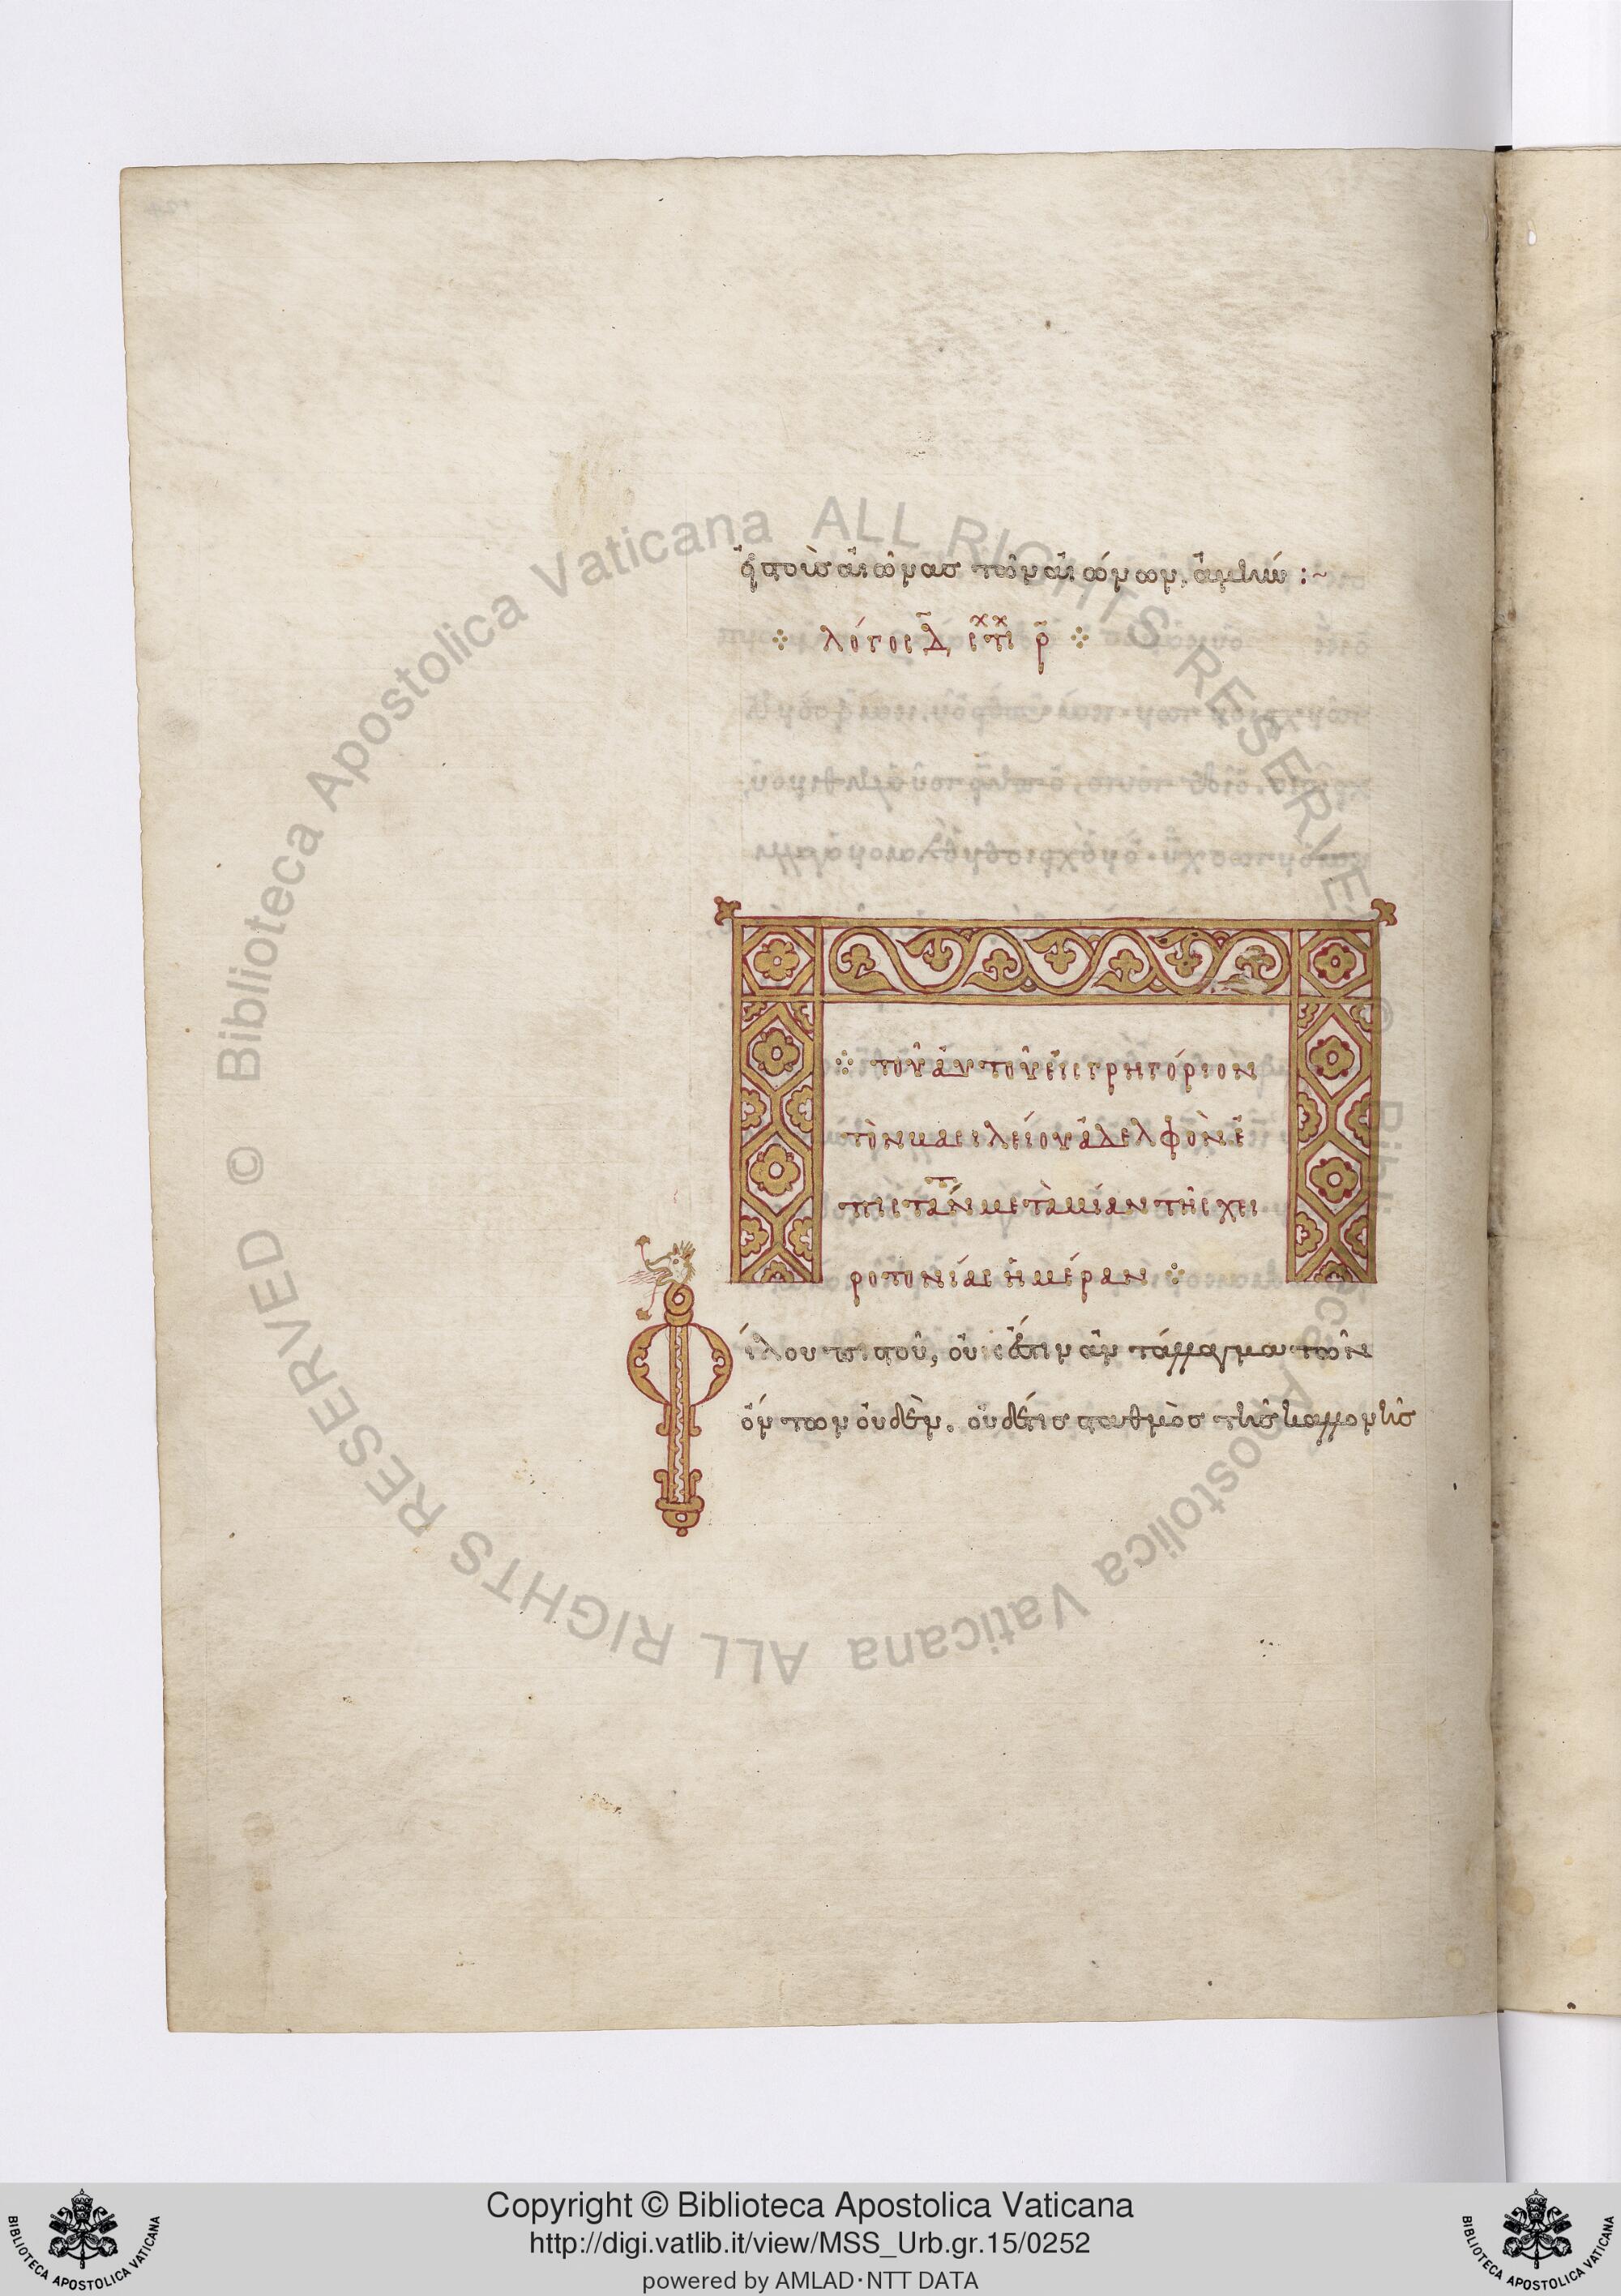 εἰς τοὺς αἰῶνας τῶν αἰώνων, ἀμήν :~
λόγος Δ στι ρ
τοῦ αὐτοῦ εἰς γρηγόριον
τὸν βασιλείου ἀδελφὸν ἐ
πιστάντ μετὰ μίαν τῆς χει
ροτονίας ἡμέραν
Φίλου πιστοῦ, οὐκ ἔστιν ἀντάλλαγμα τῶν
ὄντων οὐδὲν. οὐδέ τις σταθμὸς τῆς καλλονῆς
© Biblioteca Apostolica Vaticana ALL RIGHTS RESERVED © Biblioteca Apostolica Vaticana ALL RIGHTS RESERVED
Copyright © Biblioteca Apostolica Vaticana
http://digi.vatlib.it/view/MSS_Urb.gr.15/0252
powered by AMLAD·NTT DATA
BIBLIOTECA APOSTOLICA VATICANA
BIBLIOTECA APOSTOLICA VATICANA